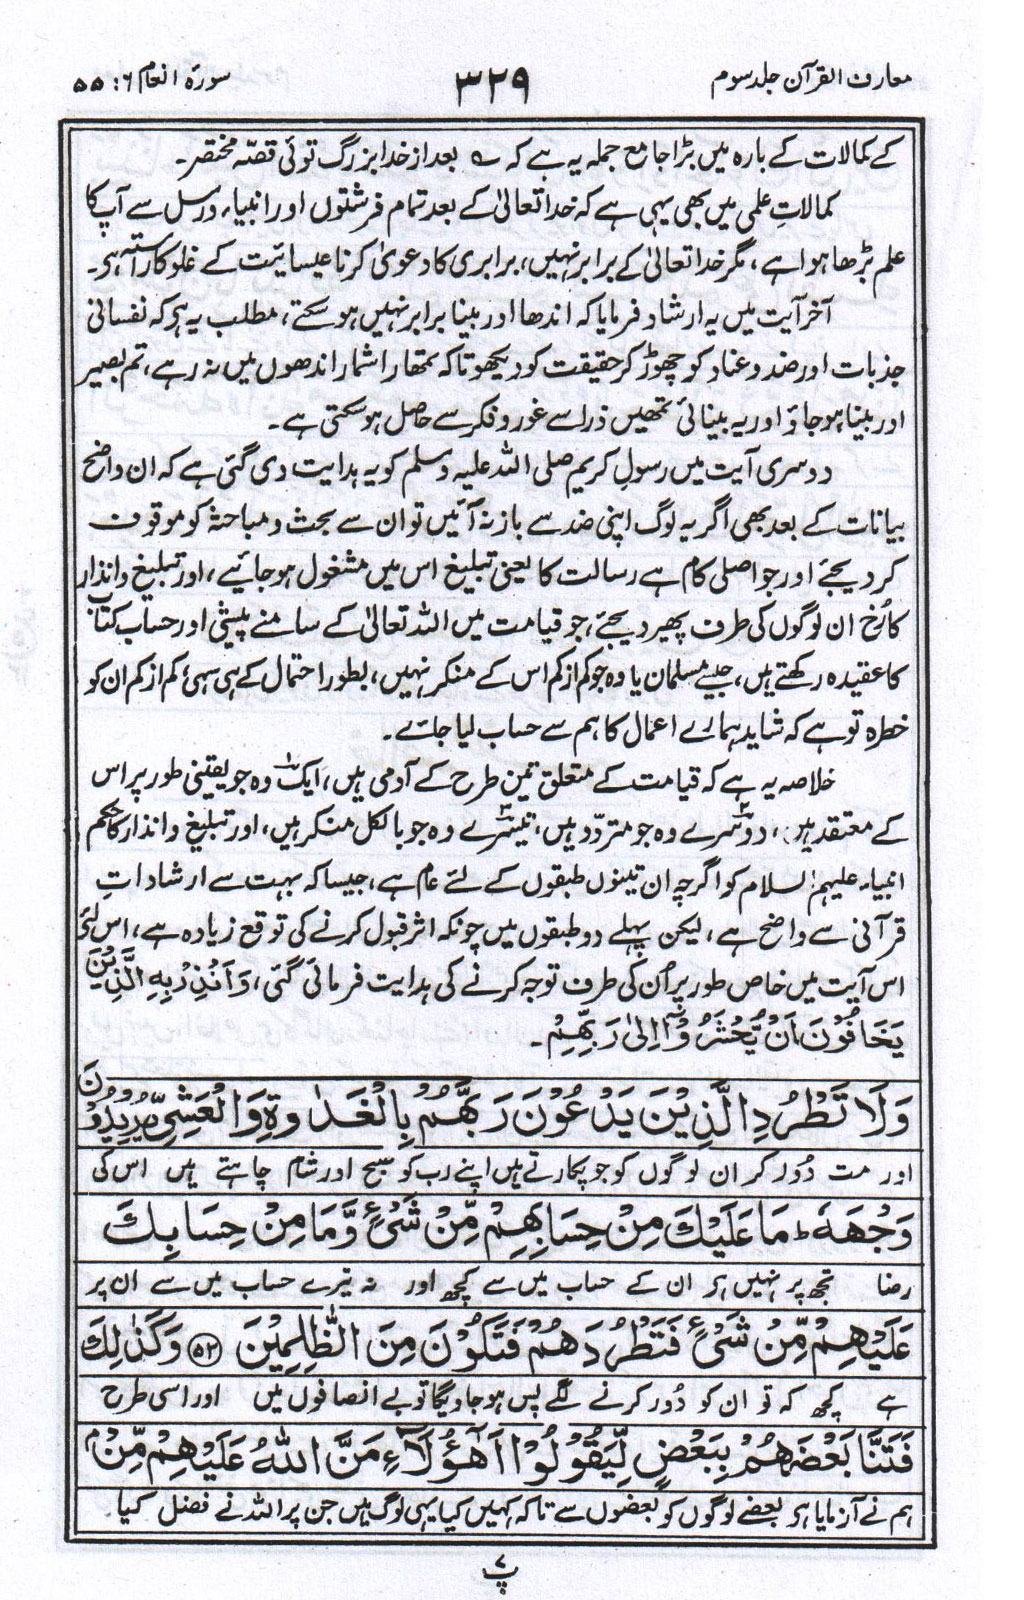 معارف القرآن جلد سوم
۳۲۹
سورۂ انعام ۶: ۵۵
کے کمالات کے بارہ میں بڑا جامع جملہ یہ ہے کہ ؎ بعد از خدا بزرگ توئی قصّہ مختصر۔
کمالاتِ علمی میں بھی یہی ہے کہ خدا تعالیٰ کے بعد تمام فرشتوں اور انبیاء و رسل سے آپ کا
علم بڑھا ہوا ہے، مگر خدا تعالیٰ کے برابر نہیں، برابری کا دعویٰ کرنا عیسائیت کے غلو کا راستہ ہے۔
آخر آیت میں یہ ارشاد فرمایا کہ اندھا اور بینا برابر نہیں ہوسکتے، مطلب یہ ہے کہ نفسانی
جذبات اور ضد و عناد کو چھوڑ کر حقیقت کو دیکھو تاکہ تمھارا شمار اندھوں میں نہ رہے، تم بصیر
اور بینا ہوجاؤ اور یہ بینائی تمھیں ذرا سے غور و فکر سے حاصل ہوسکتی ہے۔
دوسری آیت میں رسول کریم صلی اللہ علیہ وسلم کو یہ ہدایت دی گئی ہے کہ ان واضح
بیانات کے بعد بھی اگر یہ لوگ اپنی ضد سے باز نہ آئیں تو ان سے بحث و مباحثہ کو موقوف
کر دیجئے اور جو اصلی کام ہے رسالت کا یعنی تبلیغ اس میں مشغول ہوجائیے، اور تبلیغ و انذار
کا رُخ ان لوگوں کی طرف پھیر دیجئے، جو قیامت میں اللہ تعالیٰ کے سامنے پیشی اور حساب کتاب
کا عقیدہ رکھتے ہیں، جیسے مسلمان یا وہ جو کم از کم اس کے منکر نہیں، بطور احتمال کے ہی سہی، کم از کم ان کو
خطرہ تو ہے کہ شاید ہمارے اعمال کا ہم سے حساب لیا جائے۔
خلاصہ یہ ہے کہ قیامت کے متعلق تین طرح کے آدمی ہیں، ایک۱ وہ جو یقینی طور پر اس
کے معتقد ہیں، دوسرے۲ وہ جو متردّد ہیں، تیسرے۳ وہ جو بالکل منکر ہیں، اور تبلیغ و انذار کا حکم
انبیاء علیہم السلام کو اگرچہ ان تینوں طبقوں کے لئے عام ہے، جیسا کہ بہت سے ارشاداتِ
قرآنی سے واضح ہے، لیکن پہلے دو طبقوں میں چونکہ اثر قبول کرنے کی توقع زیادہ ہے، اس لئے
اس آیت میں خاص طور پر اُن کی طرف توجہ کرنے کی ہدایت فرمائی گئی، وَاَنْذِرْ بِهِ الَّذِيْنَ
يَخَافُوْنَ اَنْ يُّحْشَرُوْٓا اِلٰى رَبِّهِمْ۔
وَلَا تَطْرُدِ الَّذِيْنَ يَدْعُوْنَ رَبَّهُمْ بِالْغَدٰوةِ وَالْعَشِيِّ يُرِيْدُوْنَ
اور مت دُور کر ان لوگوں کو جو پکارتے ہیں اپنے رب کو صبح اور شام چاہتے ہیں اس کی
وَجْهَهٗ ؕ مَا عَلَيْكَ مِنْ حِسَابِهِمْ مِّنْ شَيْءٍ وَّمَا مِنْ حِسَابِكَ
رضا تجھ پر نہیں ہے ان کے حساب میں سے کچھ اور نہ تیرے حساب میں سے ان پر
عَلَيْهِمْ مِّنْ شَيْءٍ فَتَطْرُدَهُمْ فَتَكُوْنَ مِنَ الظّٰلِمِيْنَ ﴿۵۲﴾ وَكَذٰلِكَ
ہے کچھ کہ تو ان کو دُور کرنے لگے پس ہوجاویگا تو بے انصافوں میں اور اسی طرح
فَتَنَّا بَعْضَهُمْ بِبَعْضٍ لِّيَقُوْلُوْٓا اَهٰٓؤُلَآءِ مَنَّ اللّٰهُ عَلَيْهِمْ مِّنْۢ
ہم نے آزمایا ہے بعضے لوگوں کو بعضوں سے تاکہ کہیں کیا یہی لوگ ہیں جن پر اللہ نے فضل کیا
پ ۷